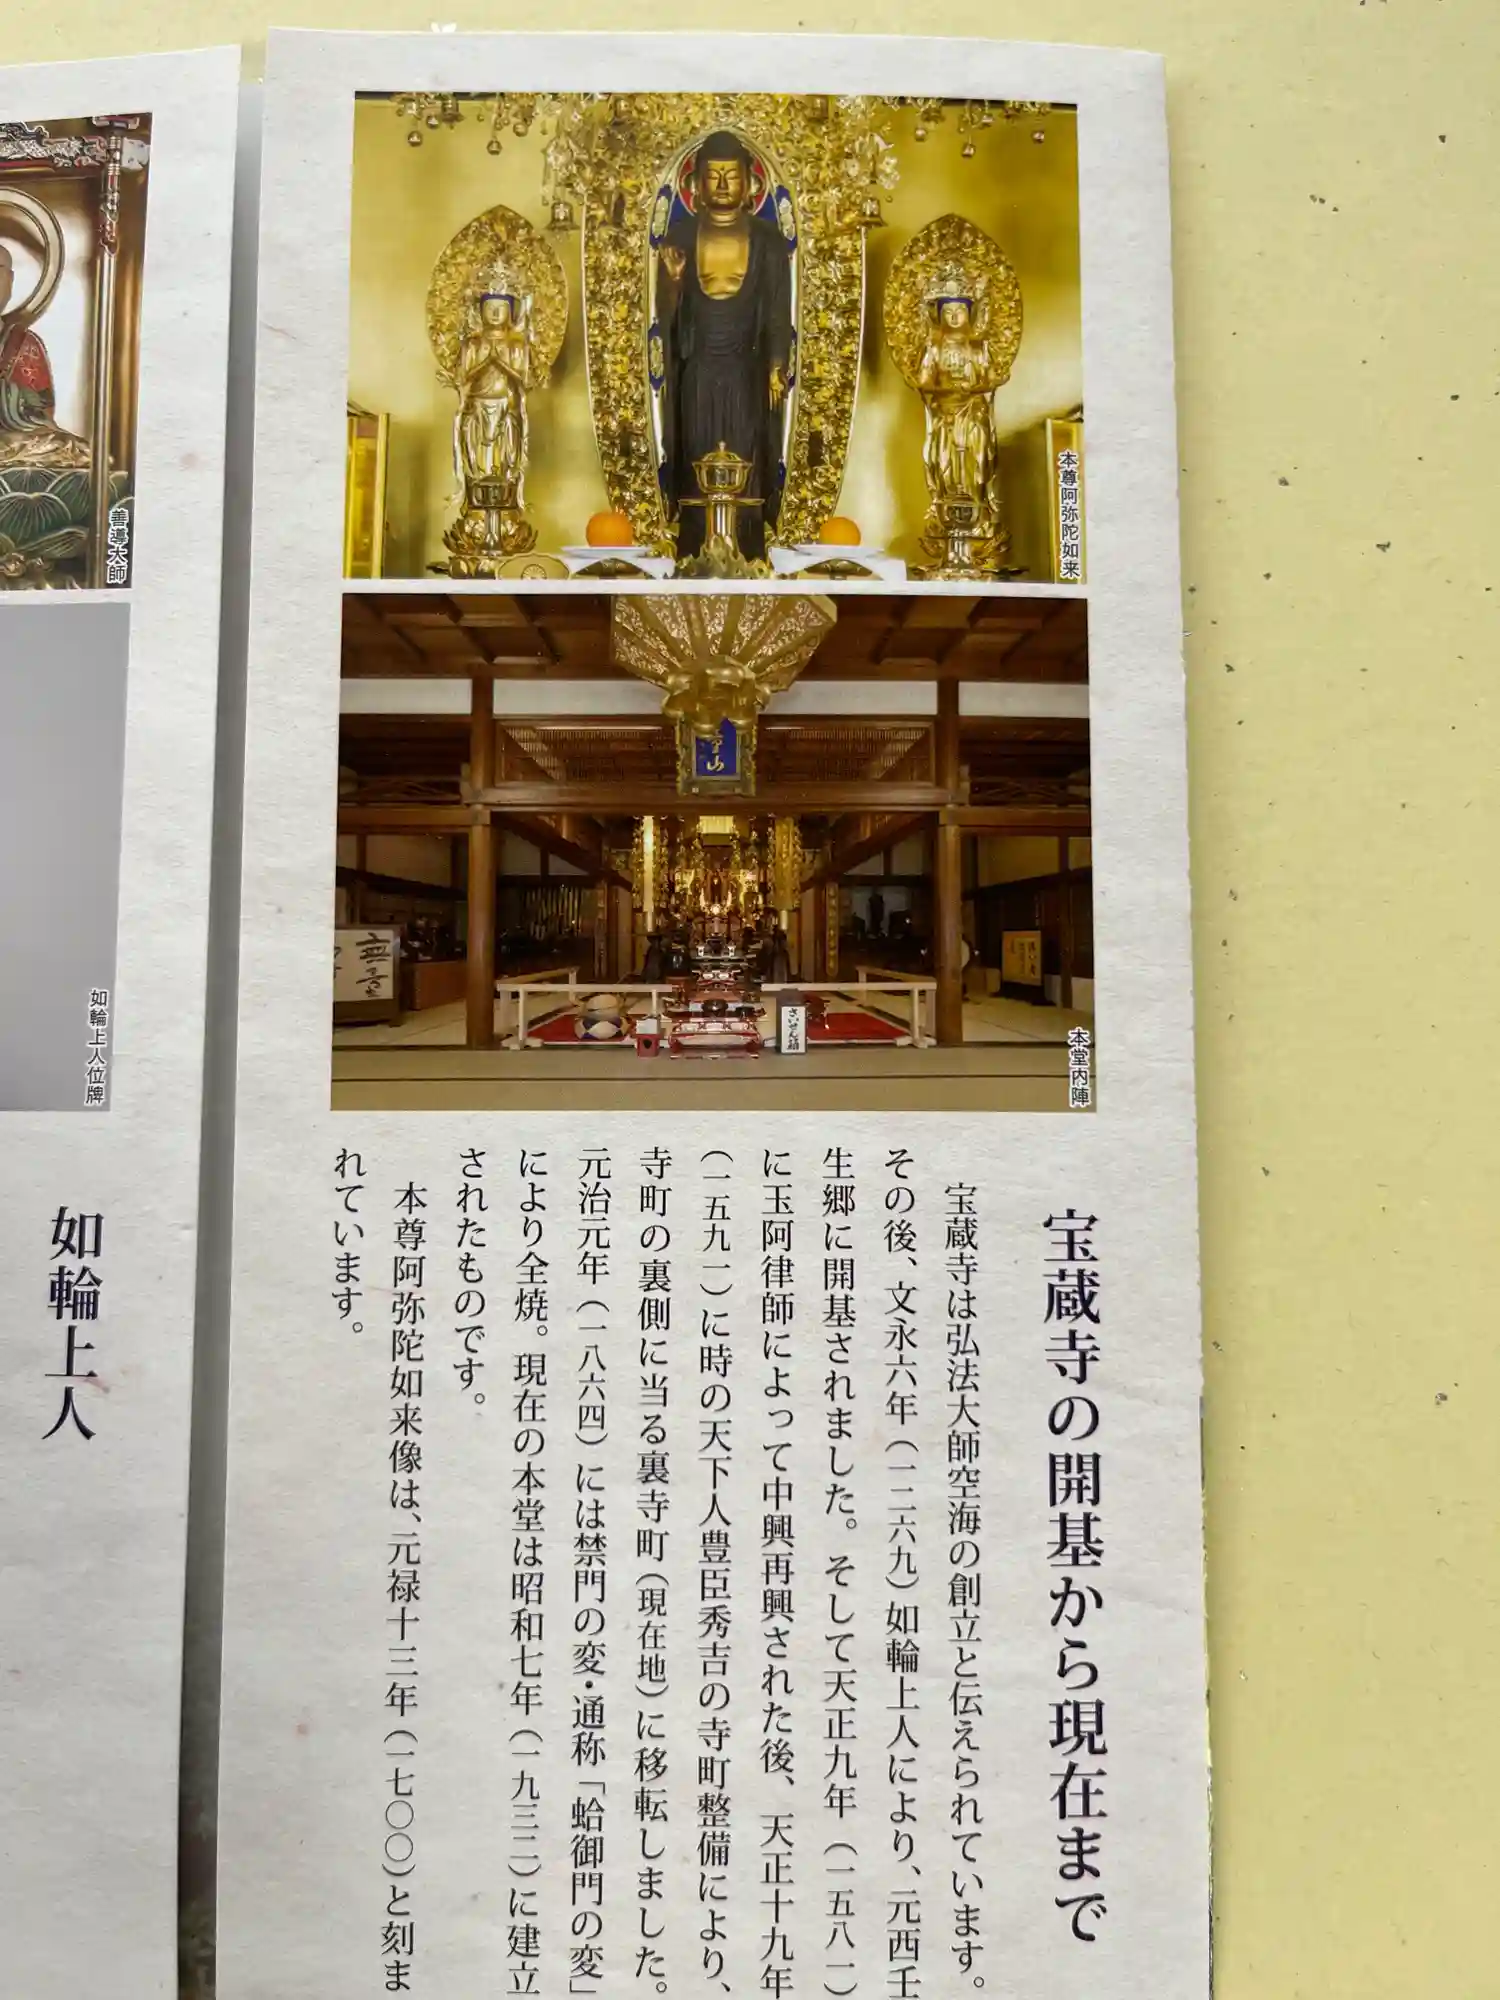 本尊阿弥陀如来
本堂内陣
さいせん箱
宝蔵寺の開基から現在まで
宝蔵寺は弘法大師空海の創立と伝えられています。
その後、文永六年（一二六九）如輪上人により、元西壬
生郷に開基されました。そして天正九年（一五八一）
に玉阿律師によって中興再興された後、天正十九年
（一五九一）に時の天下人豊臣秀吉の寺町整備により、
寺町の裏側に当る裏寺町（現在地）に移転しました。
元治元年（一八六四）には禁門の変・通称「蛤御門の変」
により全焼。現在の本堂は昭和七年（一九三二）に建立
されたものです。
本尊阿弥陀如来像は、元禄十三年（一七〇〇）と刻ま
れています。
善導大師
如輪上人位牌
如輪上人